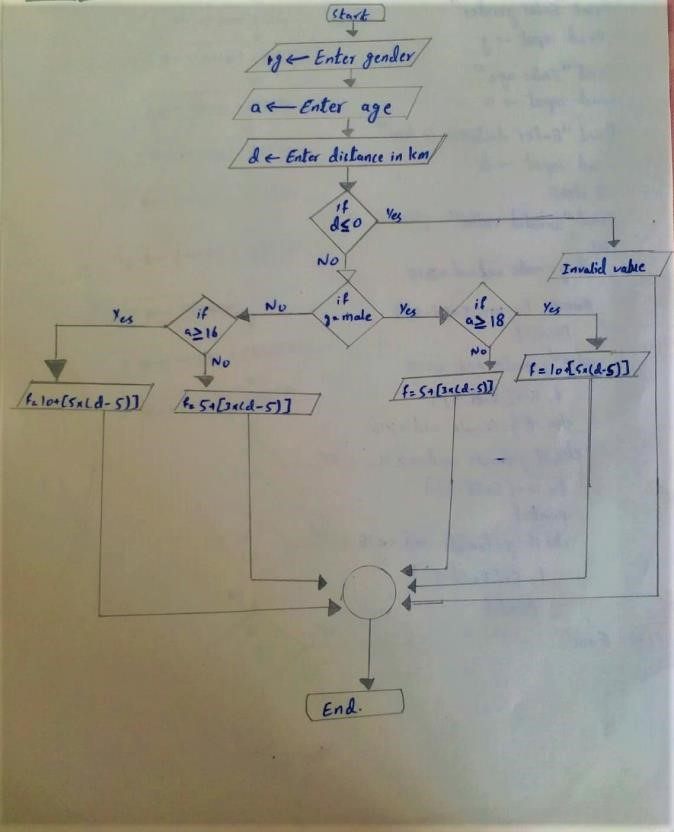 Start
g ← Enter gender
a ← Enter age
d ← Enter distance in km
if
d≤0
Yes
No
Invalid value
if
g=male
No
Yes
if
a≥16
Yes
No
if
a≥18
Yes
No
f=10+[5x(d-5)]
f=5+[3x(d-5)]
f=5+[3x(d-5)]
f=10+[5x(d-5)]
End.